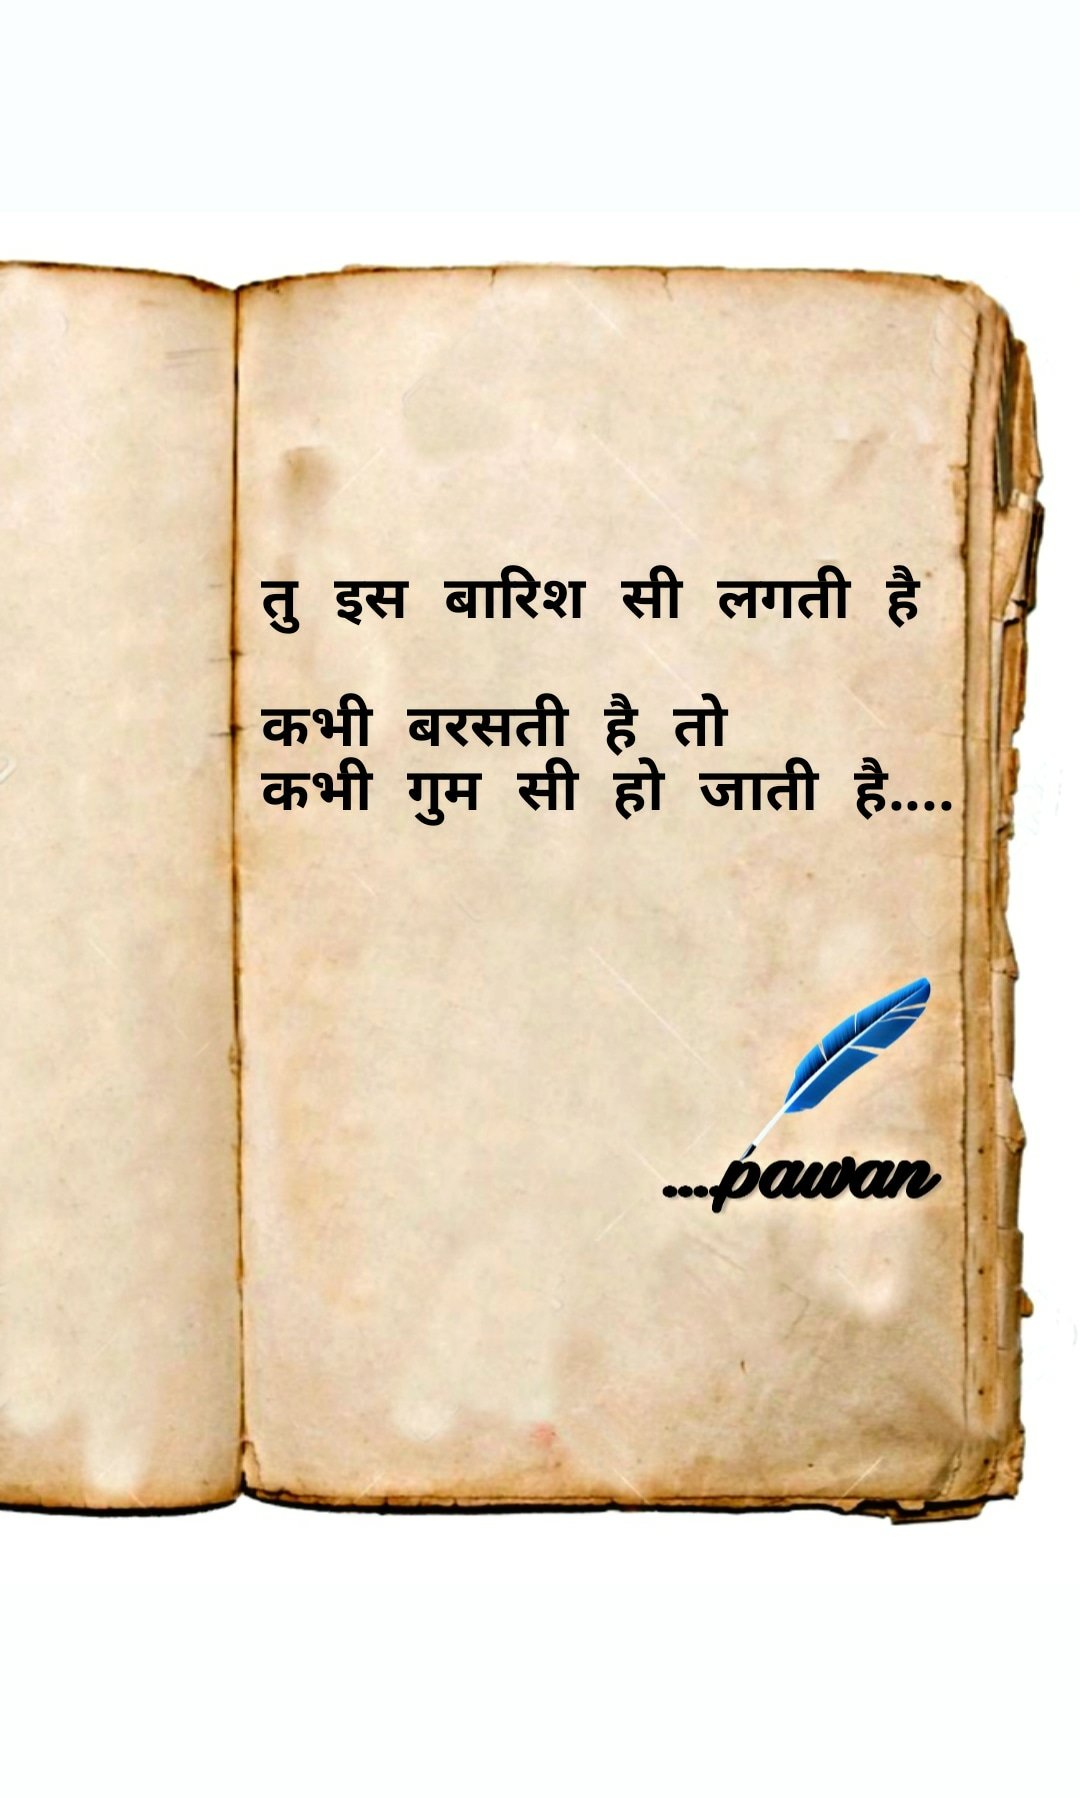 तु इस बारिश सी लगती है
कभी बरसती है तो
कभी गुम सी हो जाती है....
....pawan